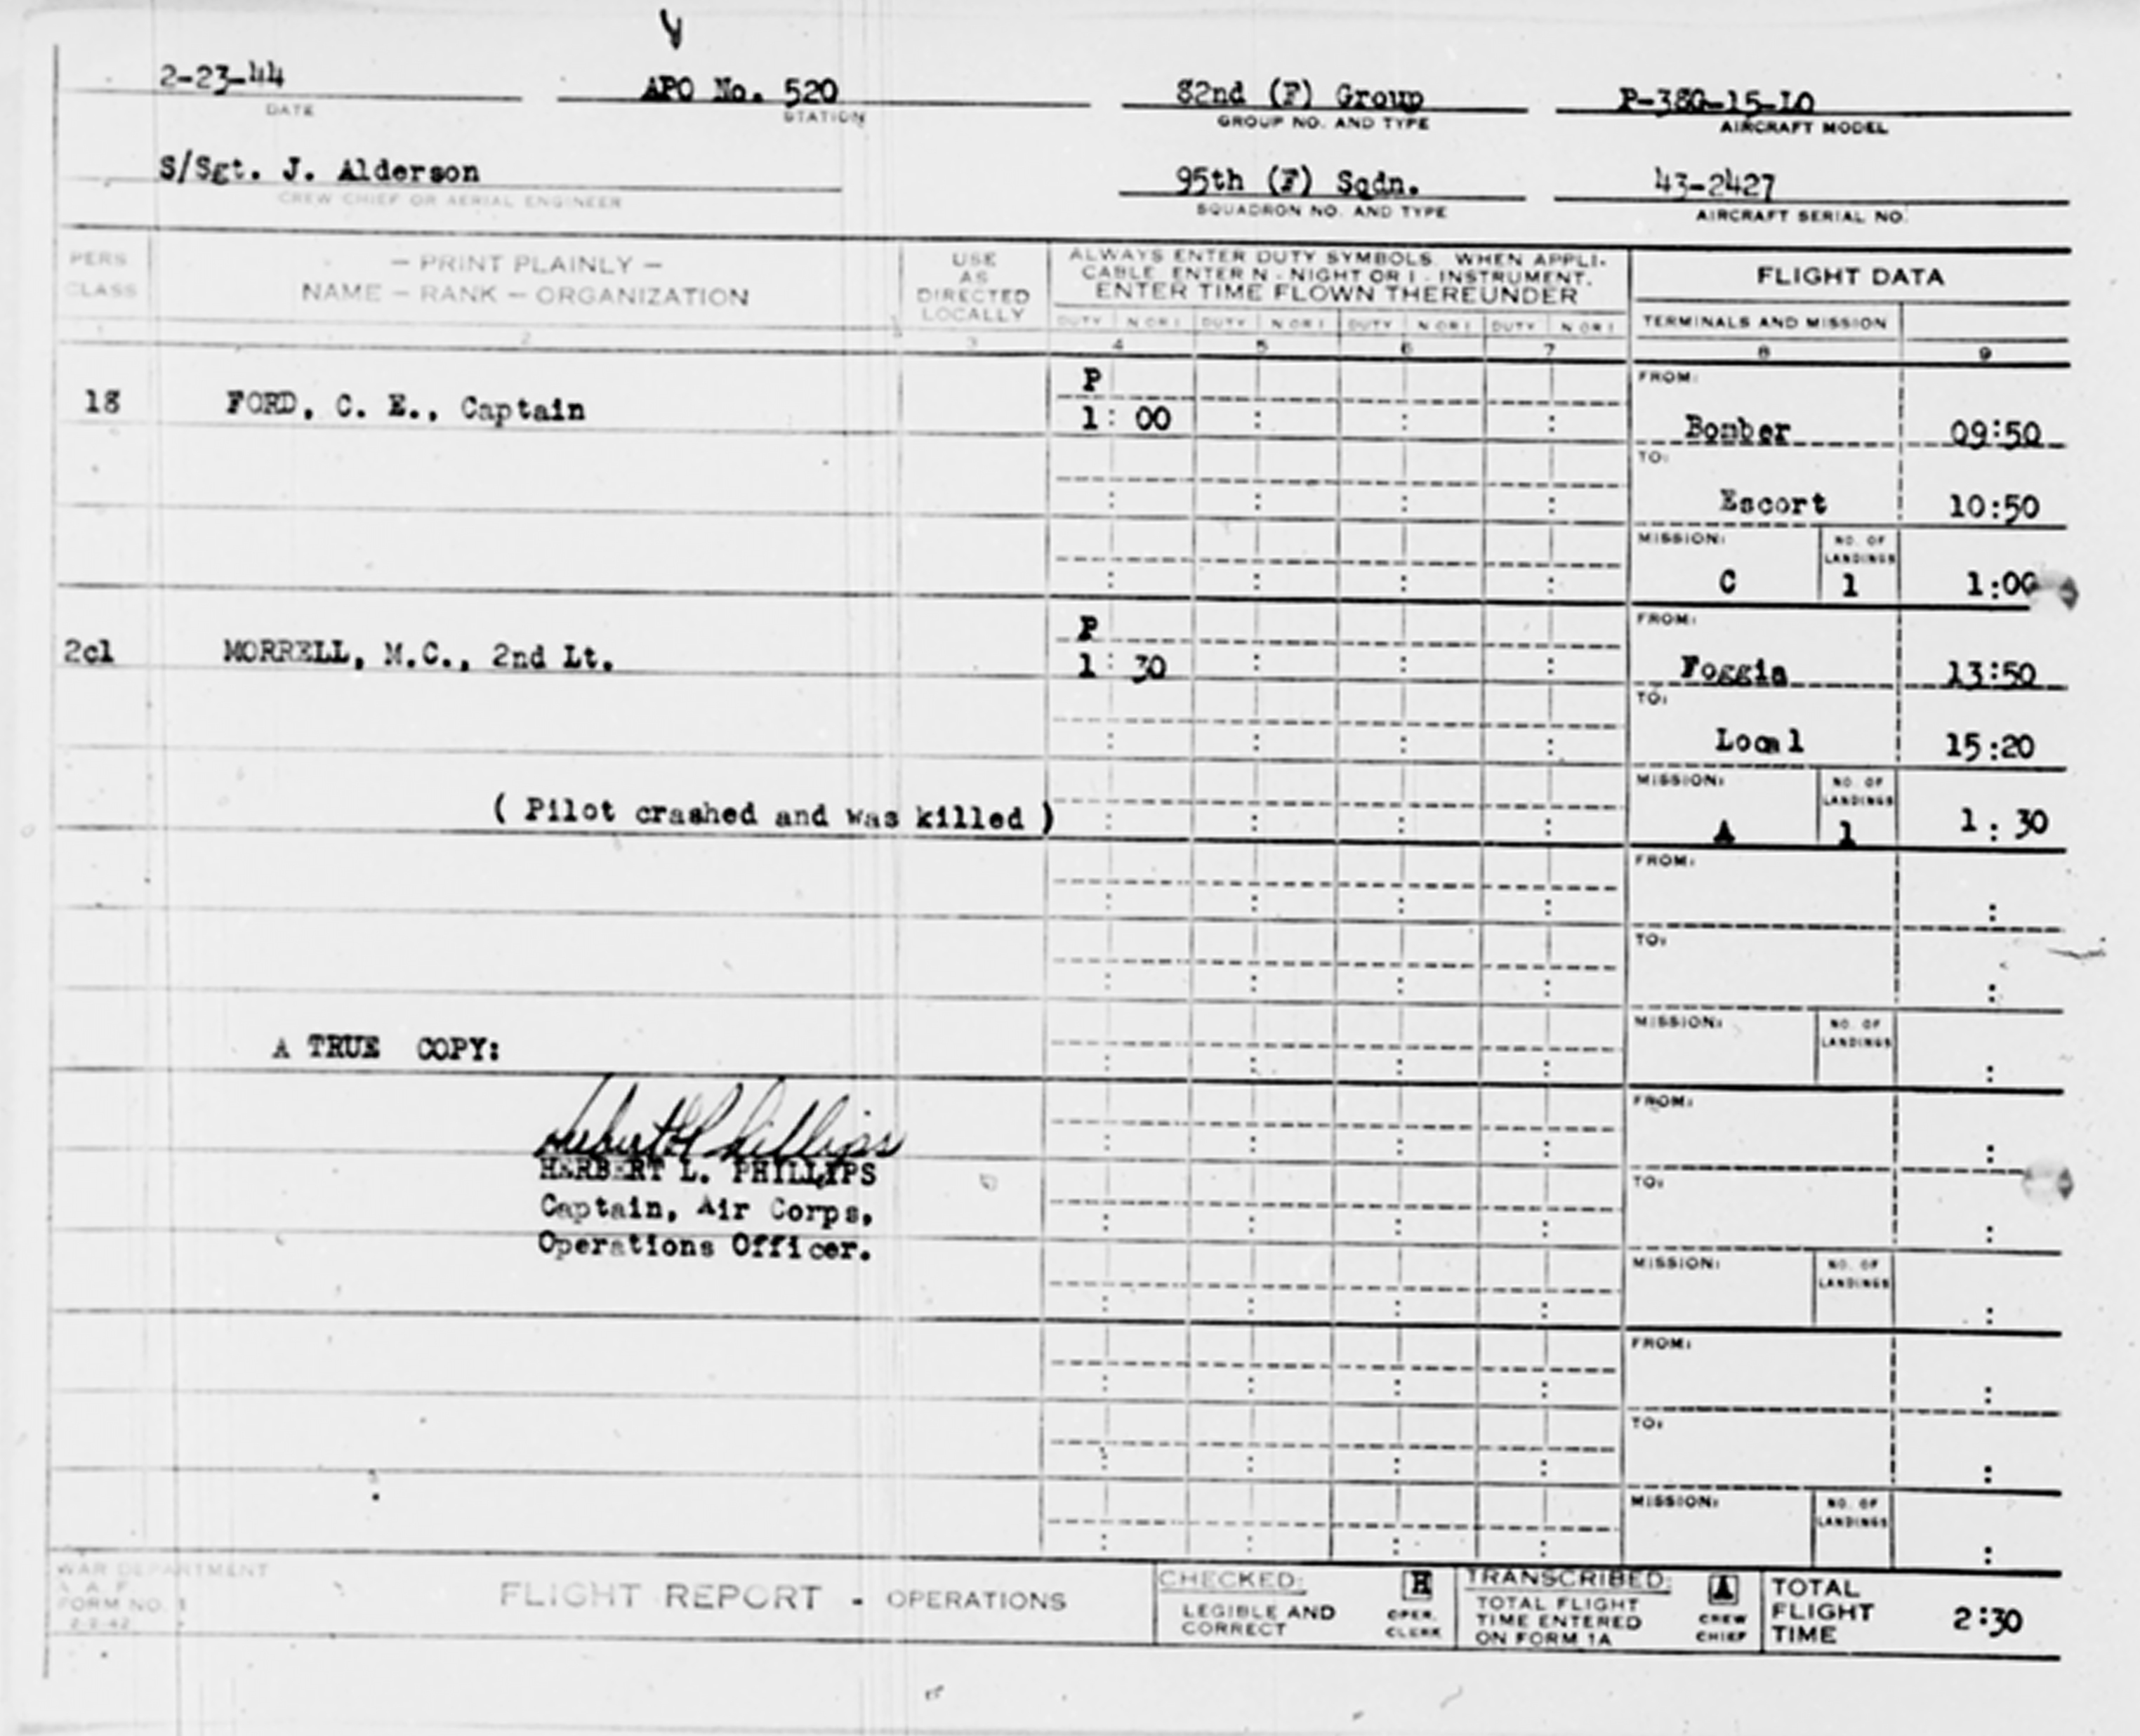 2-23-44 APO No. 520 82nd (F) Group P-38G-15-LO
DATE STATION GROUP NO. AND TYPE AIRCRAFT MODEL
S/Sgt. J. Alderson 95th (F) Sqdn. 43-2427
CREW CHIEF OR AERIAL ENGINEER SQUADRON NO. AND TYPE AIRCRAFT SERIAL NO.
PERS CLASS — PRINT PLAINLY — USE AS DIRECTED LOCALLY ALWAYS ENTER DUTY SYMBOLS. WHEN APPLI-
NAME — RANK — ORGANIZATION CABLE ENTER N - NIGHT OR I - INSTRUMENT.
ENTER TIME FLOWN THEREUNDER FLIGHT DATA
DUTY N OR I DUTY N OR I DUTY N OR I DUTY N OR I TERMINALS AND MISSION
1 2 3 4 5 6 7 8 9
P FROM:
18 FORD, C. E., Captain 1: 00 : : : Bomber 09:50
TO:
: : : : Escort 10:50
MISSION: NO. OF LANDINGS
: : : : C 1 1:00
P FROM:
2cl MORRELL, M.C., 2nd Lt. 1: 30 : : : Foggia 13:50
TO:
: : : : Local 15:20
MISSION: NO. OF LANDINGS
( Pilot crashed and was killed ) : : : : A 1 1: 30
FROM:
: : : : :
TO:
: : : : :
MISSION: NO. OF LANDINGS
A TRUE COPY: : : : : :
FROM:
Herbert L Phillips : : : : :
HERBERT L. PHILLIPS TO:
Captain, Air Corps, : : : : :
Operations Officer. MISSION: NO. OF LANDINGS
: : : : :
FROM:
: : : : :
TO:
: : : : :
MISSION: NO. OF LANDINGS
: : : : :
WAR DEPARTMENT
A. A. F.
FORM NO. 1
2-2-42
FLIGHT REPORT - OPERATIONS
CHECKED:
LEGIBLE AND
CORRECT
H
OPER.
CLERK
TRANSCRIBED:
TOTAL FLIGHT
TIME ENTERED
ON FORM 1A
A
CREW
CHIEF
TOTAL
FLIGHT
TIME
2:30